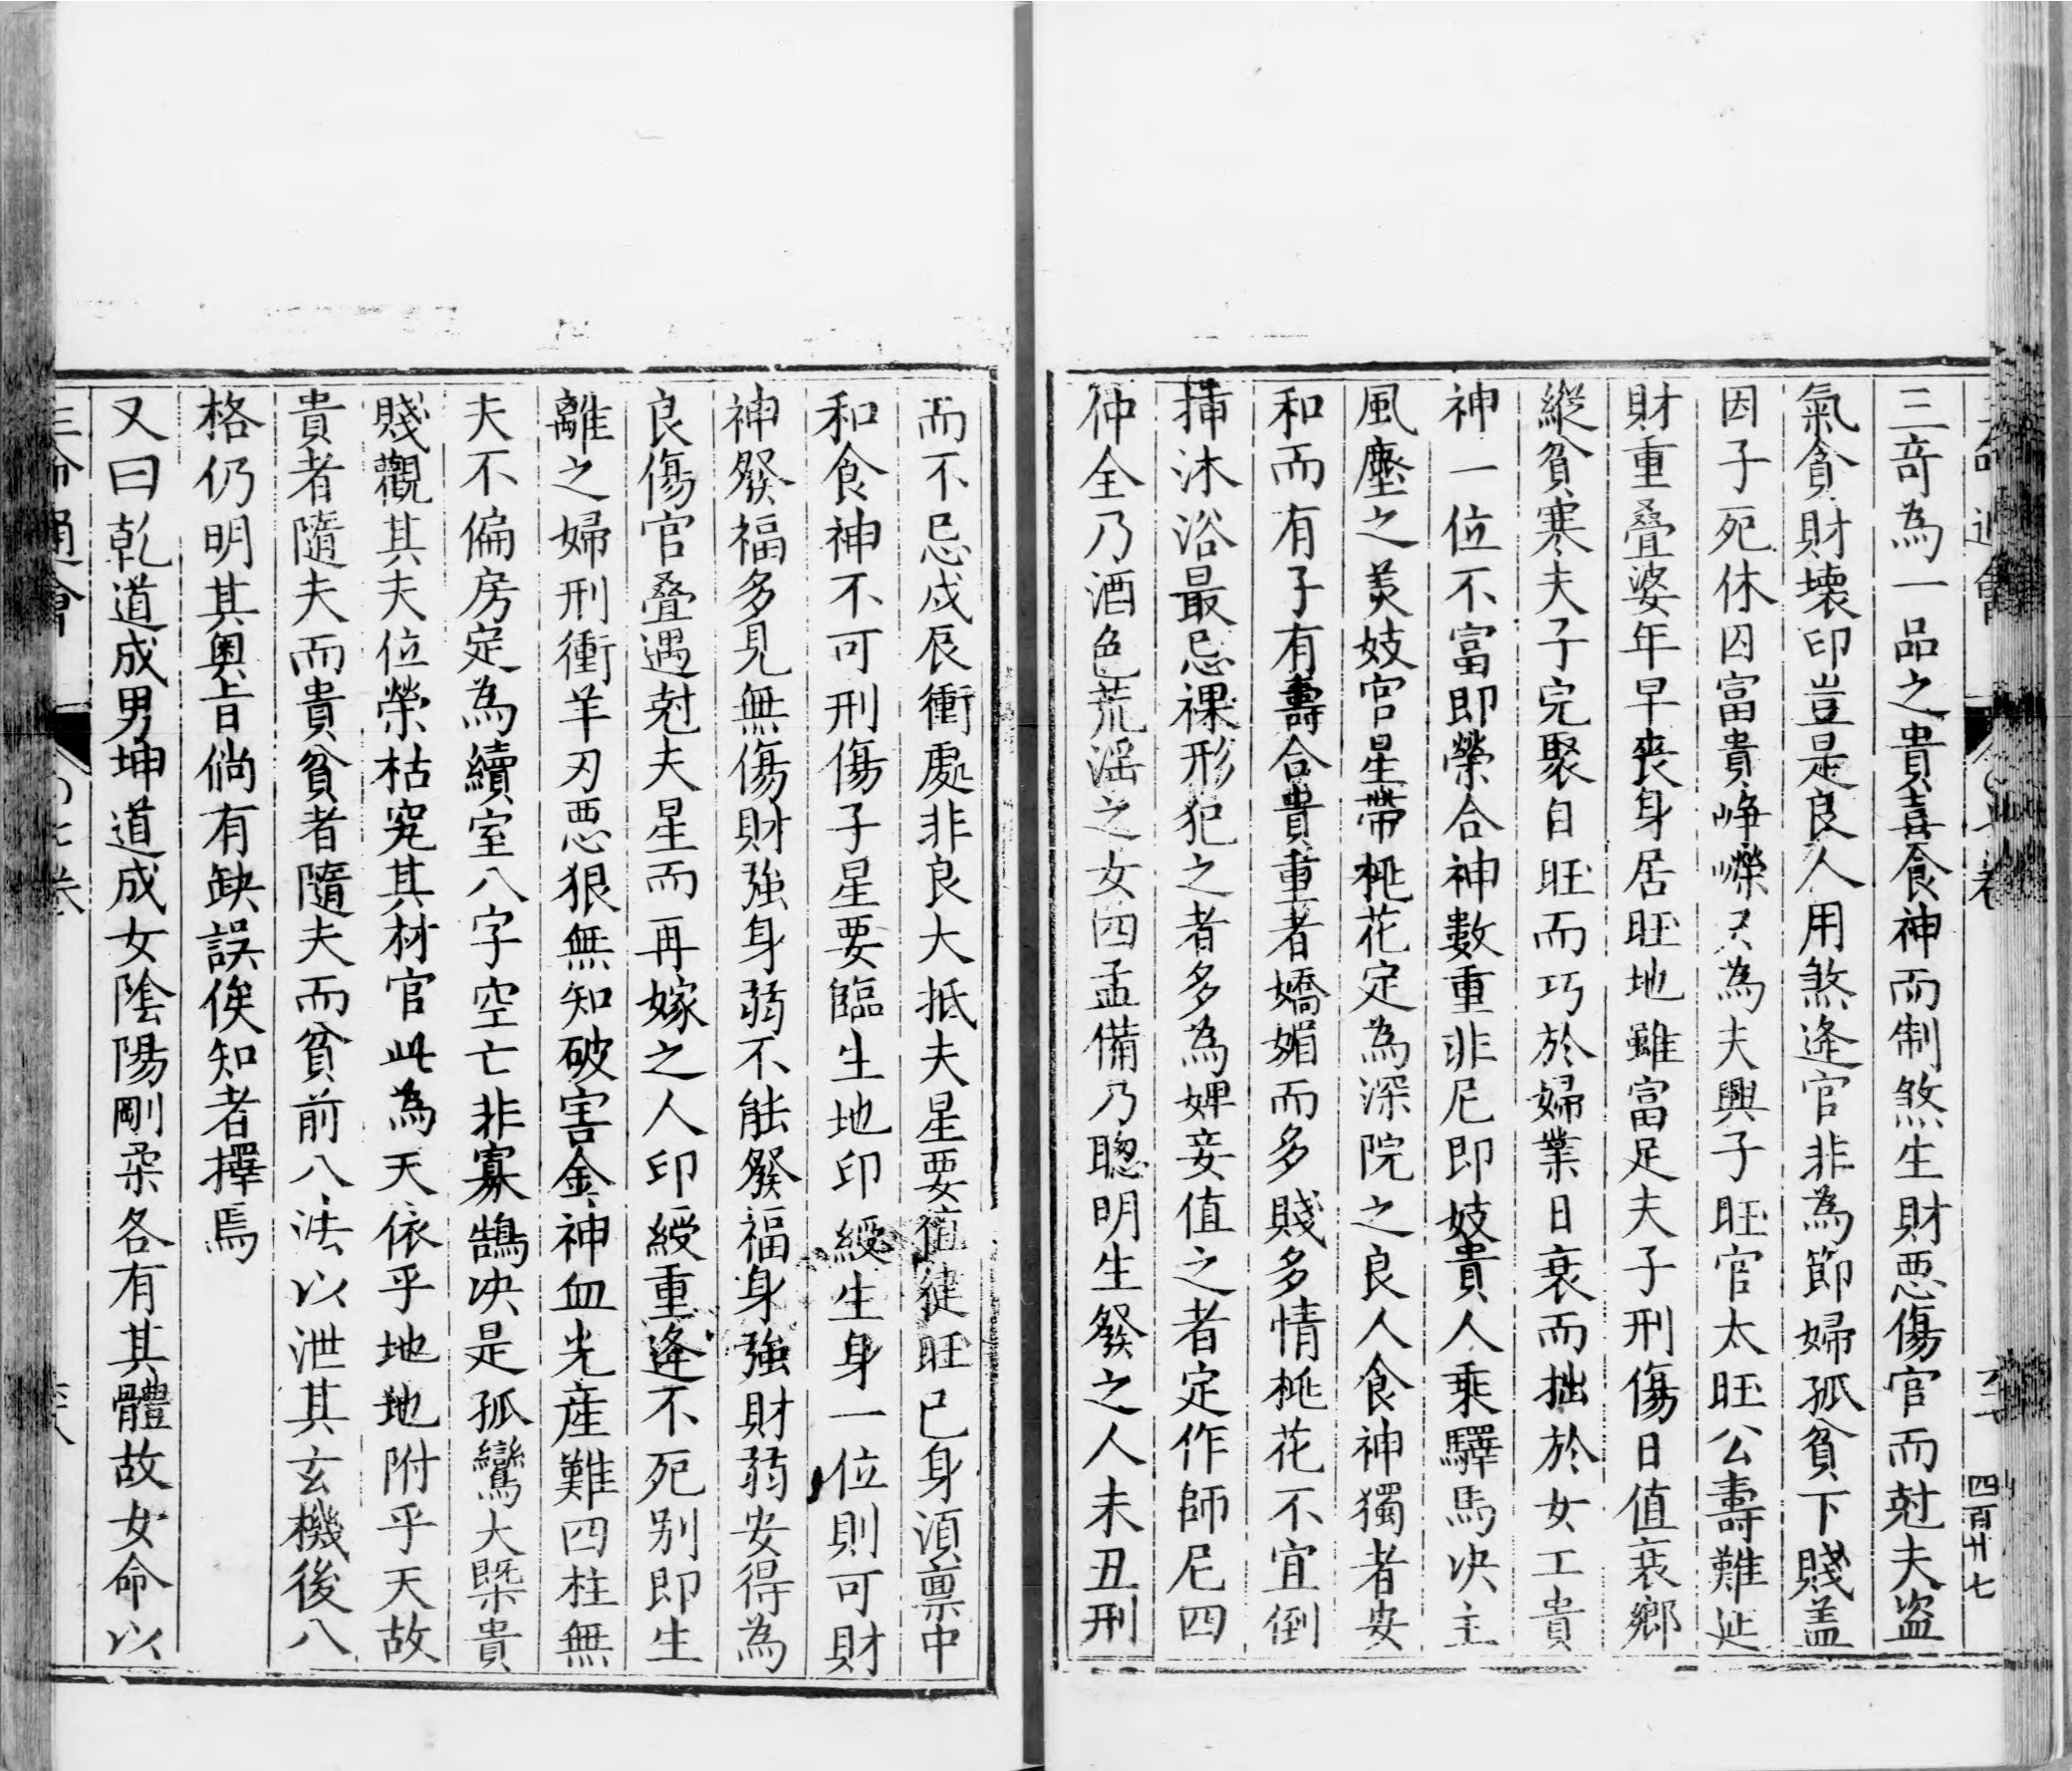 三竒為一品之貴喜食神而制煞生財惡傷官而尅夫盗
氣貪財壊印豈是良人用煞逢官非為節婦孤貧下賤盖
因子死休囚富貴崢嶸只為夫興子旺官太旺公壽難延
財重叠婆年早喪身居旺地雖富足夫子刑傷日值衰鄉
縱貧寒夫子完聚自旺而巧於婦業日衰而拙於女工貴
神一位不富即榮合神數重非尼即妓貴人乗驛馬决主
風塵之美妓官星帶桃花定為深院之良人食神獨者安
和而有子有壽合貴重者嬌媚而多賤多情桃花不宜倒
揷沐浴最忌裸形犯之者多為婢妾值之者定作師尼四
仲全乃酒色荒淫之女四孟備乃聰明生發之人未丑刑
四百廾七
而不忌戍辰衝處非良大抵夫星要值徤旺已身湏禀中
和食神不可刑傷子星要臨生地印綬生身一位則可財
神發福多見無傷財強身弱不能發福身強財弱安得為
良傷官叠遇尅夫星而再嫁之人印綬重逢不死别即生
離之婦刑衝羊刃惡狠無知破害金神血光産難四柱無
夫不偏房定為續室八字空亡非寡鵠决是孤鸞大槩貴
賤觀其夫位榮枯究其材官此為天依乎地地附乎天故
貴者隨夫而貴貧者隨夫而貧前八法以泄其玄機後八
格仍明其奥旨倘有缺誤俟知者擇焉
又曰乾道成男坤道成女陰陽剛柔各有其體故女命以
三命通會